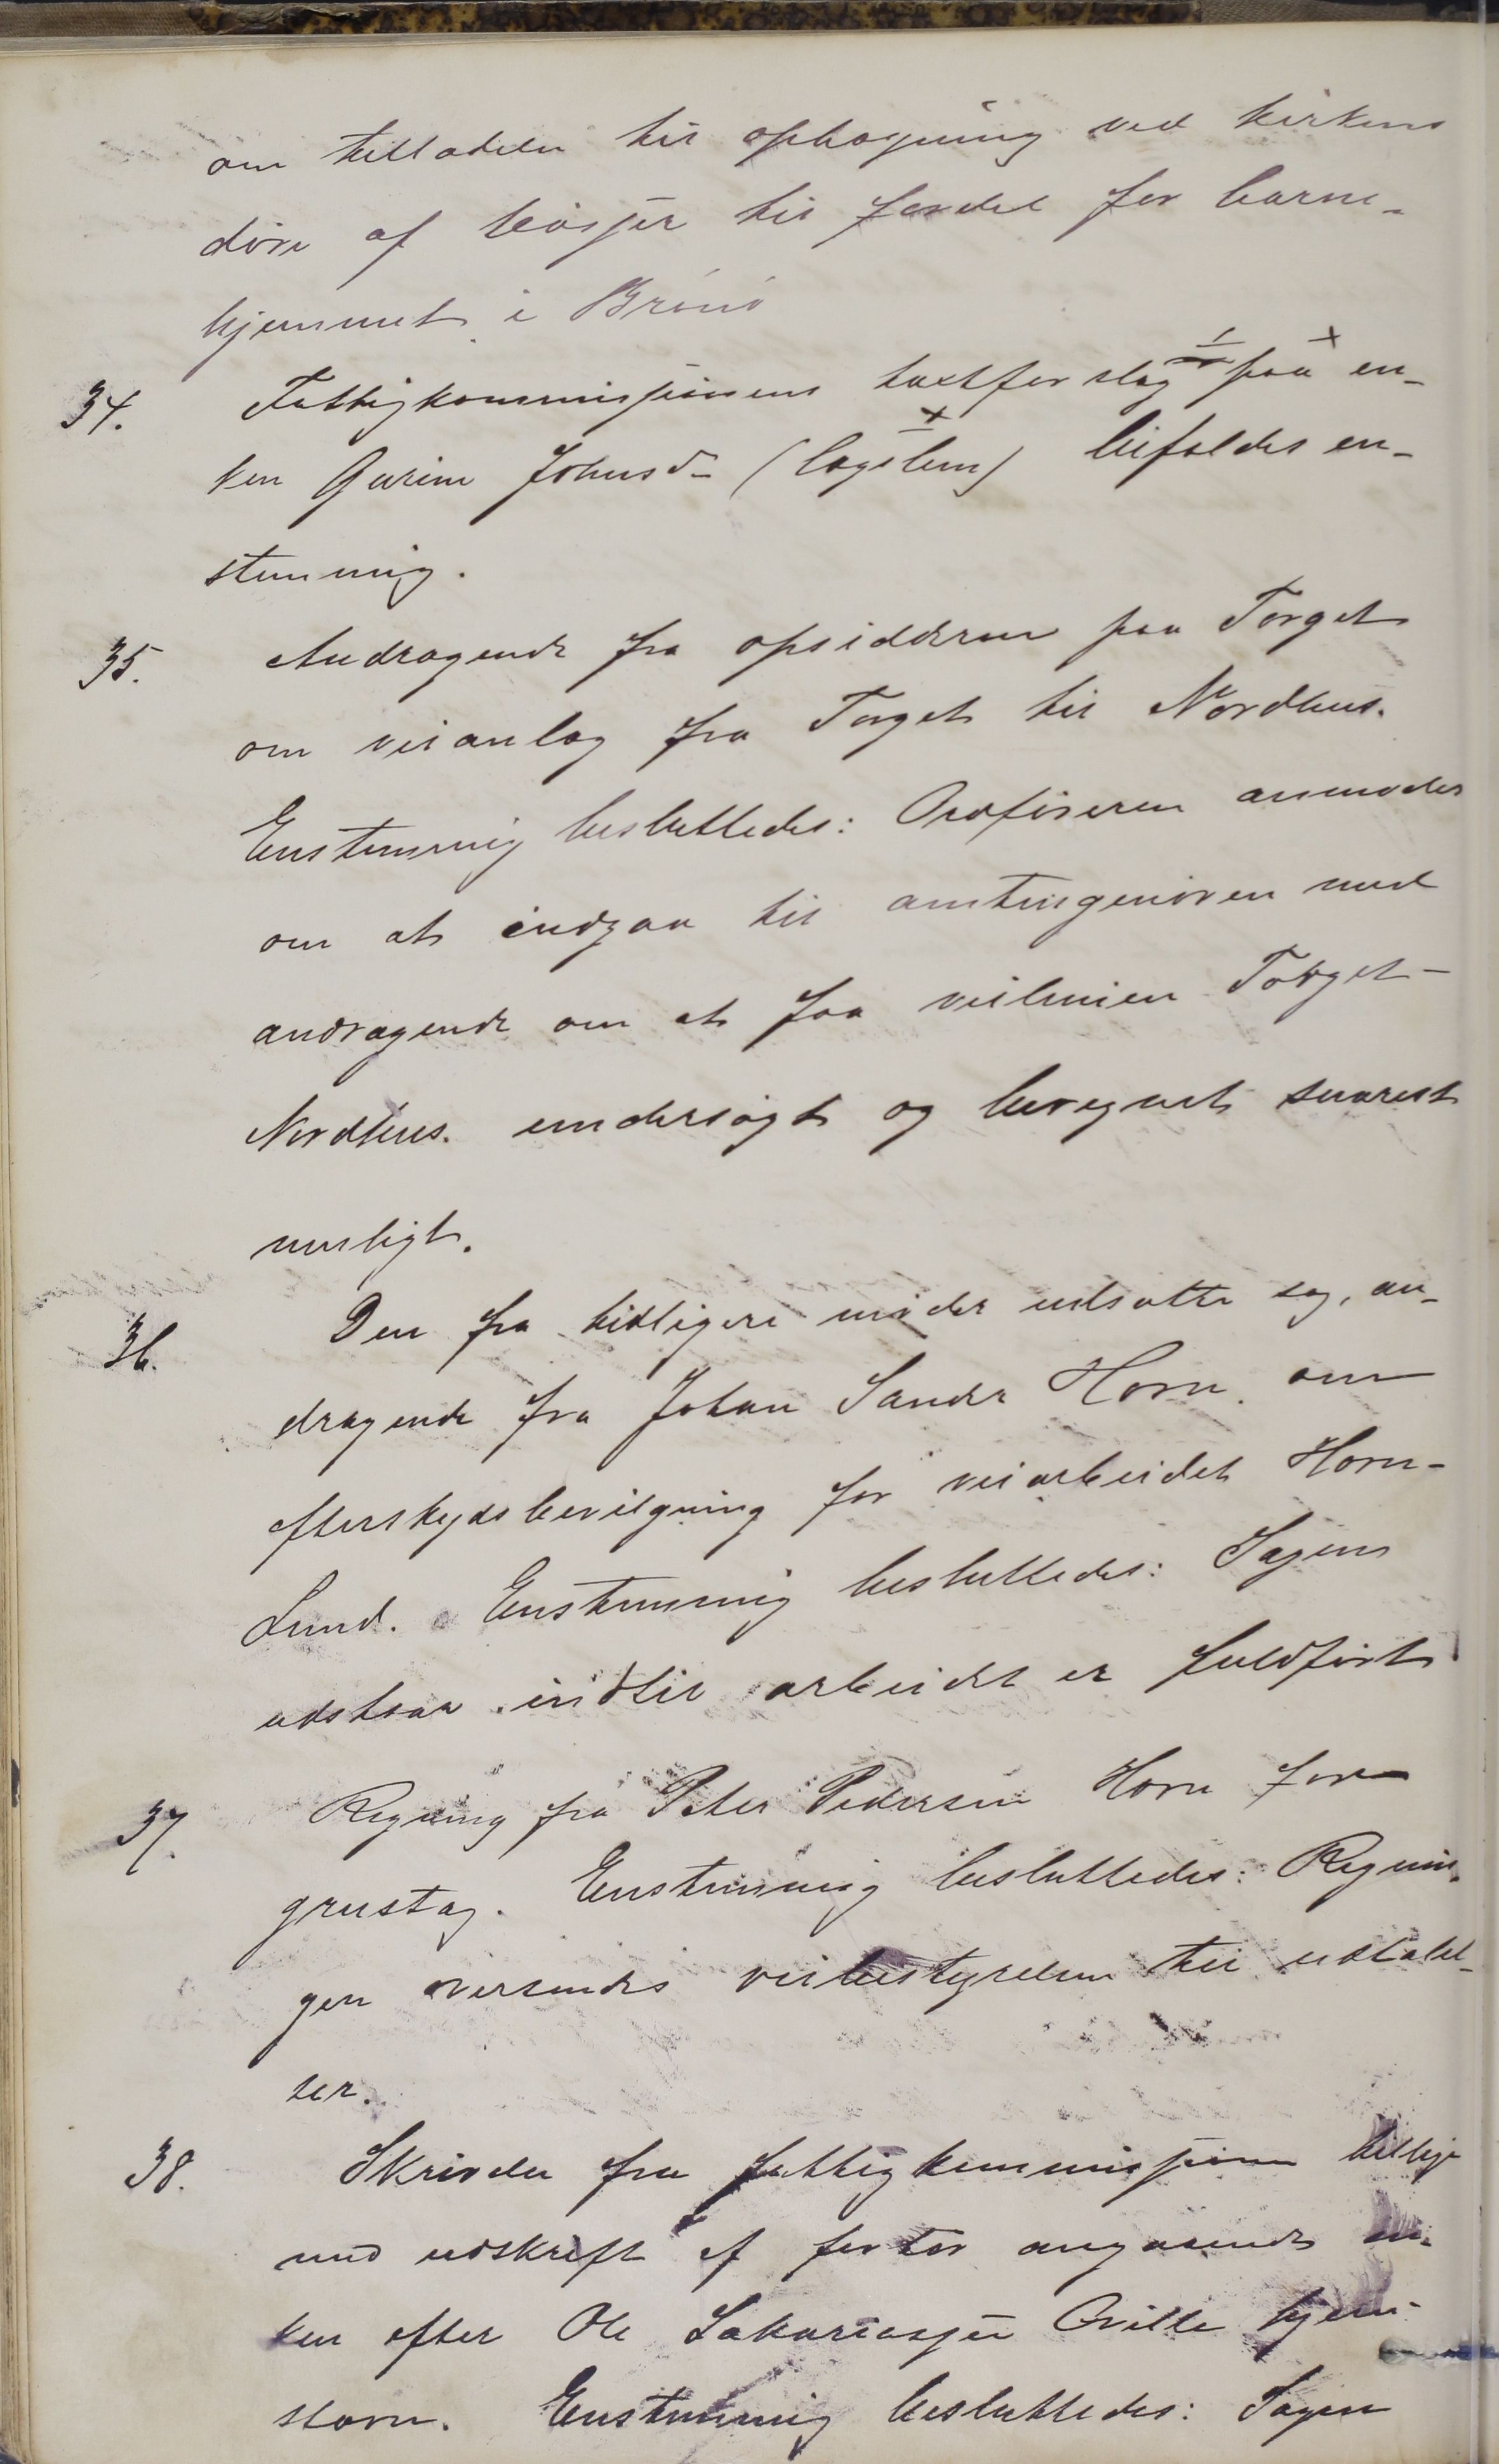 om tilladelse til ophægning ved kirkens
døre af bøsser til fordel for barne-
hjemmet i Brønø
34. Fattigkommissionens taxtforslag paa en-
ken Gurine Johnsd- (lægslem) bifaldes en-
stemmig.
35. Andragende fra opsidderne paa Torget
om veianlæg fra Torget til Nordhus.
Enstemmig besluttedes: Ordføreren anmodes
om at indgaa til amtsingeniøren med
andragende om at faa veilinien Torget-
Nordhus. undersøgt og beregnet snarest
muligt.
36. Den fra tidligere møder udsatte sag, an-
dragende fra Johan Sandr Horn om
efterskudsbevilgning for veiarbeidet Horn-
Lund. Enstemmig besluttedes: Sagen
udstaar indtil arbeidet er fuldført
37. Regning fra Peter Pedersen Horn for
grustag. Enstemmig besluttedes: Regnin-
gen oversendes veibestyrelsen til udtalel-
ser.
38. Skrivelse fra fattigkommissionen tillige
med udskrift af forhør angaaende en-
ken efter Ole Sakariassen hjem-
stavn. Enstemmig besluttedes: Sagen